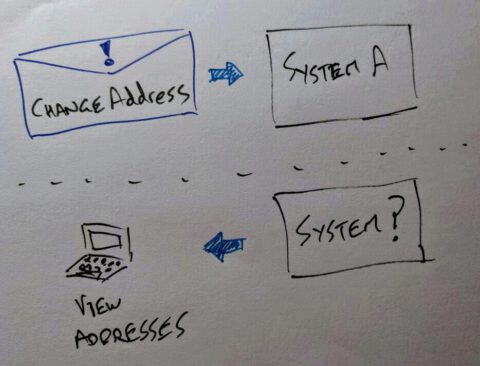 !
CHANGE Address
SYSTEM A
SYSTEM?
VIEW
ADDRESSES